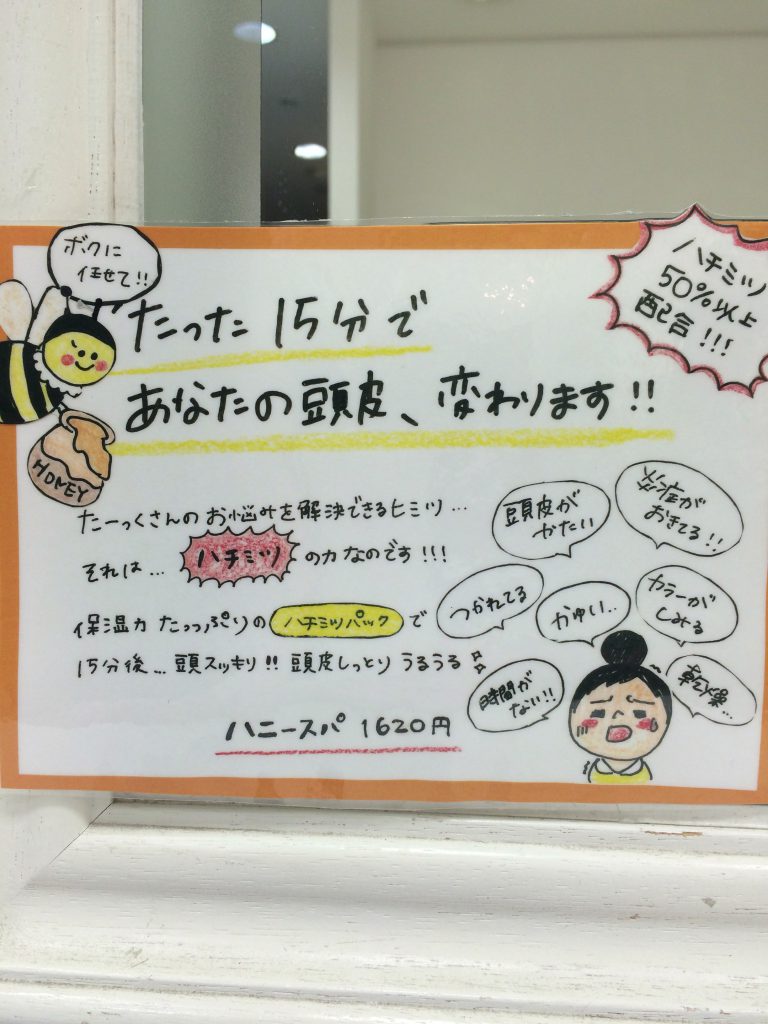 ボクに
任せて!!
ハチミツ
50%以上
配合!!!
たった15分で
あなたの頭皮、変わります!!
HONEY
たーっくさんのお悩みを解決できるヒミツ…
それは… ハチミツ の力なのです!!!
保湿力たっっぷりの ハチミツパック で
15分後…頭スッキリ!! 頭皮しっとりうるうる
ハニースパ 1620円
頭皮が
かたい
炎症が
おきてる!!
つかれてる
かゆい..
カラーが
しみる
時間が
ない!!
乾燥…